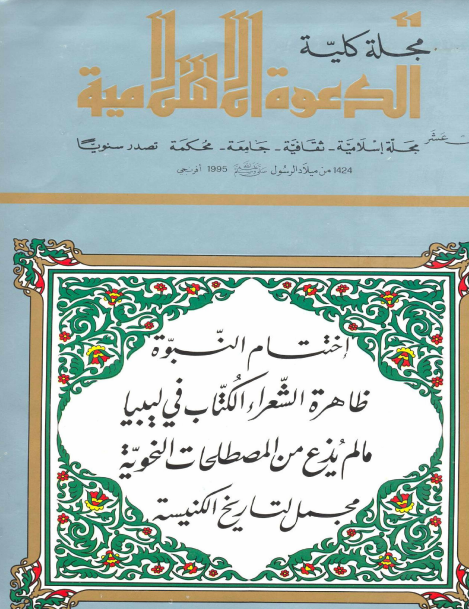 مجلة كليّة
الدعوة الإسلامية
مجلة إسلاميّة - ثقافيّة - جامعة - محكمة تصدر سنويًّا
1424 من ميلاد الرسول ﷺ 1995 أفرنجي
إختتام النّبوّة
ظاهرة الشّعراء الكُتّاب في ليبيا
مالم يُذع من المصطلحات النحويّة
مجمل لتاريخ الكنيسة